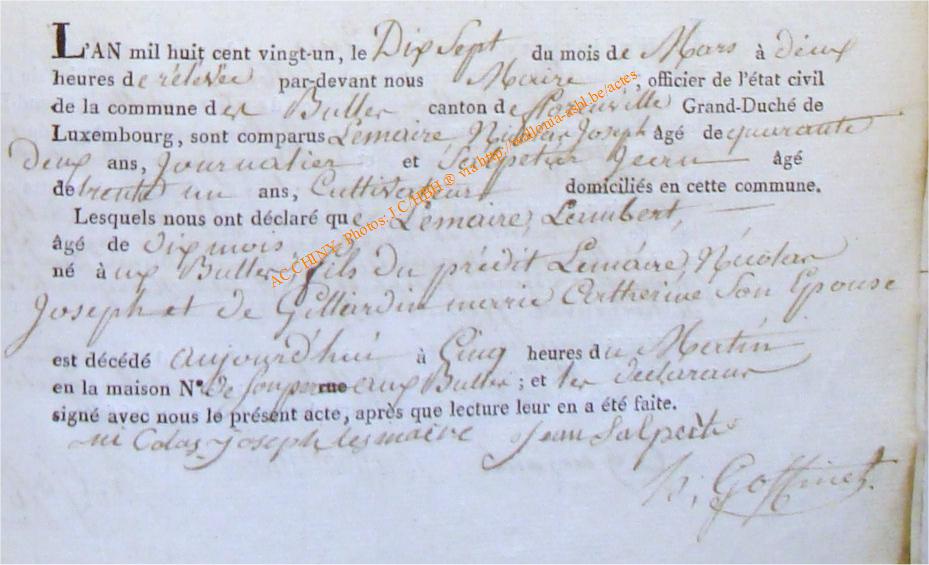 L'AN mil huit cent vingt-un, le Dix Sept du mois de Mars à deux
heures de relevée par-devant nous Maire, officier de l'état civil
de la commune des Bulles canton de Florenville Grand-Duché de
Luxembourg, sont comparus Lemaire, Nicolas Joseph âgé de quarante
deux ans, Journalier et Salpetier Jean âgé
de trente un ans, Cultivateur domiciliés en cette commune.
Lesquels nous ont déclaré que Lemaire, Lambert,
âgé de dix mois
né à ux Bulles, fils du prédit Lemaire, Nicolas
Joseph et de Gillardin marie Catherine Son Epouse
est décédé aujourd'hui à Cinq heures du Matin
en la maison N° de Son père rue aux Bulles ; et les declarans
signé avec nous le présent acte, après que lecture leur en a été faite.
ni Colas Joseph lesmaire Jean Salpeti
Goffinet
ACCHINY- Photos: J.C HBH ® via http://wallonia-asbl.be/actes